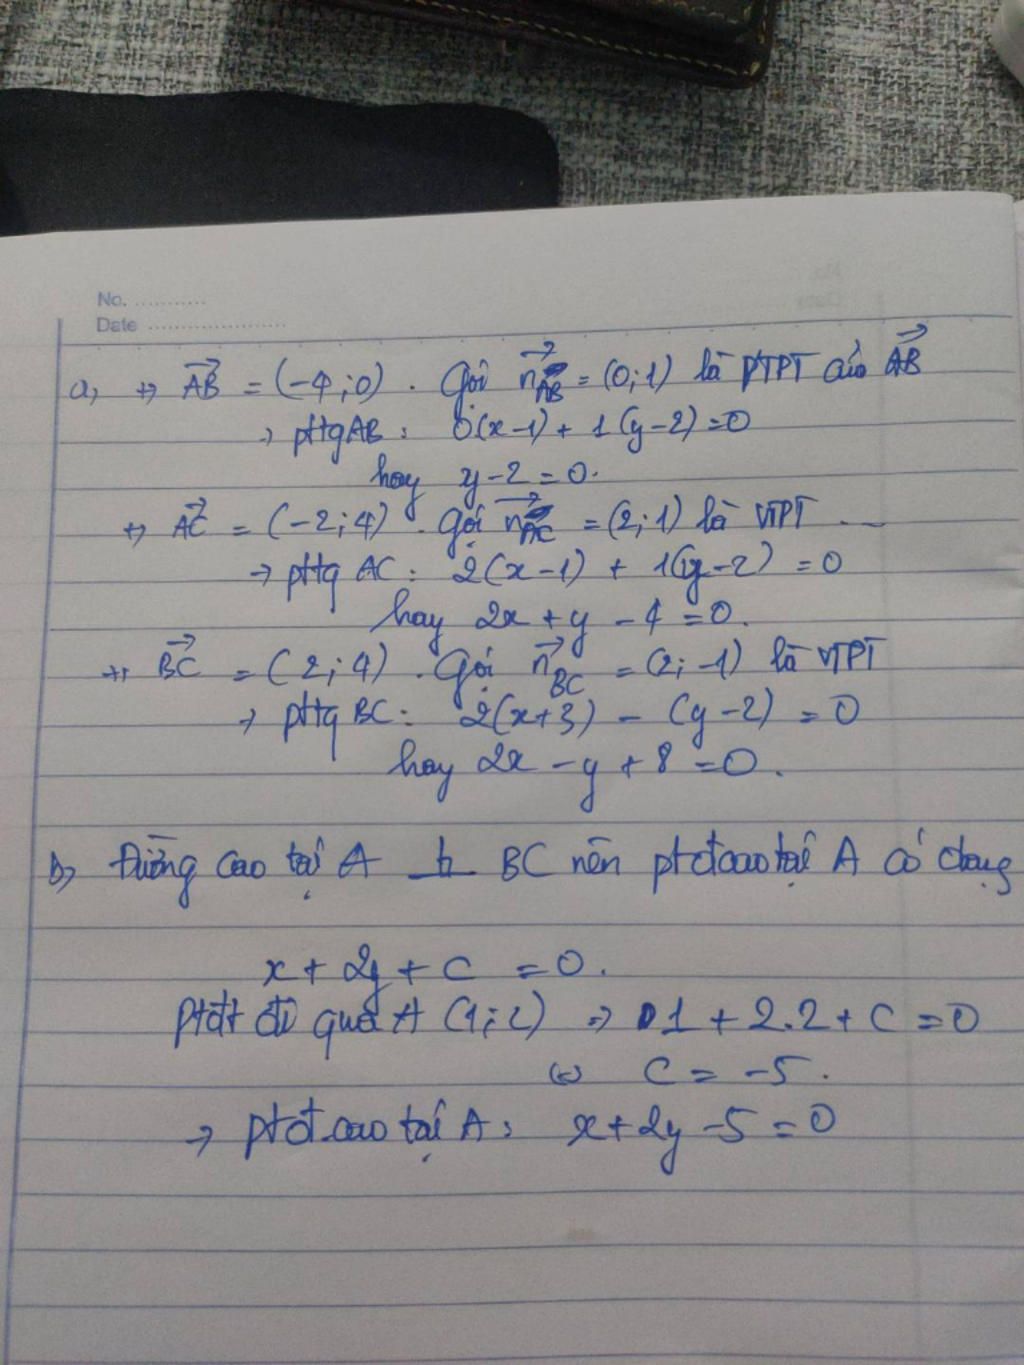 No. ...........
Date ......................
a, +, AB = (-4;0). Gọi nAB = (0;1) là PTPT của AB
→ pttq AB: 0(x-1) + 1(y-2) = 0
hay y - 2 = 0.
+, AC = (-2;4). Gọi nAC = (2;1) là VTPT ...
→ pttq AC: 2(x-1) + 1(y-2) = 0
hay 2x + y - 4 = 0.
+, BC = (2;4). Gọi nBC = (2;-1) là VTPT
→ pttq BC: 2(x+3) - (y-2) = 0
hay 2x - y + 8 = 0.
b, Đường cao tại A ⊥ BC nên ptđcao tại A có dạng
x + 2y + c = 0.
Ptđt đi qua A (1;2) → 1 + 2.2 + C = 0
⇔ C = -5.
→ ptđ.cao tại A: x + 2y - 5 = 0